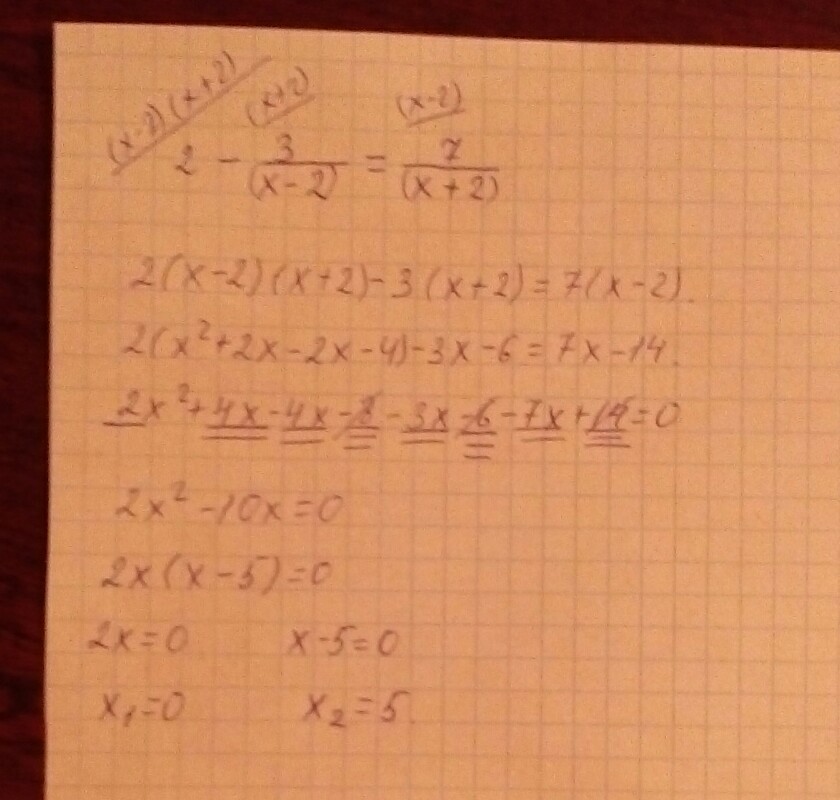 (x-2)(x+2) (x+2) (x-2)
2 - 3/(x-2) = 7/(x+2)
2(x-2)(x+2)-3(x+2)=7(x-2).
2(x²+2x-2x-4)-3x-6=7x-14.
2x²+4x-4x-8-3x-6-7x+14=0
2x²-10x=0
2x(x-5)=0
2x=0 x-5=0
x₁=0 x₂=5.